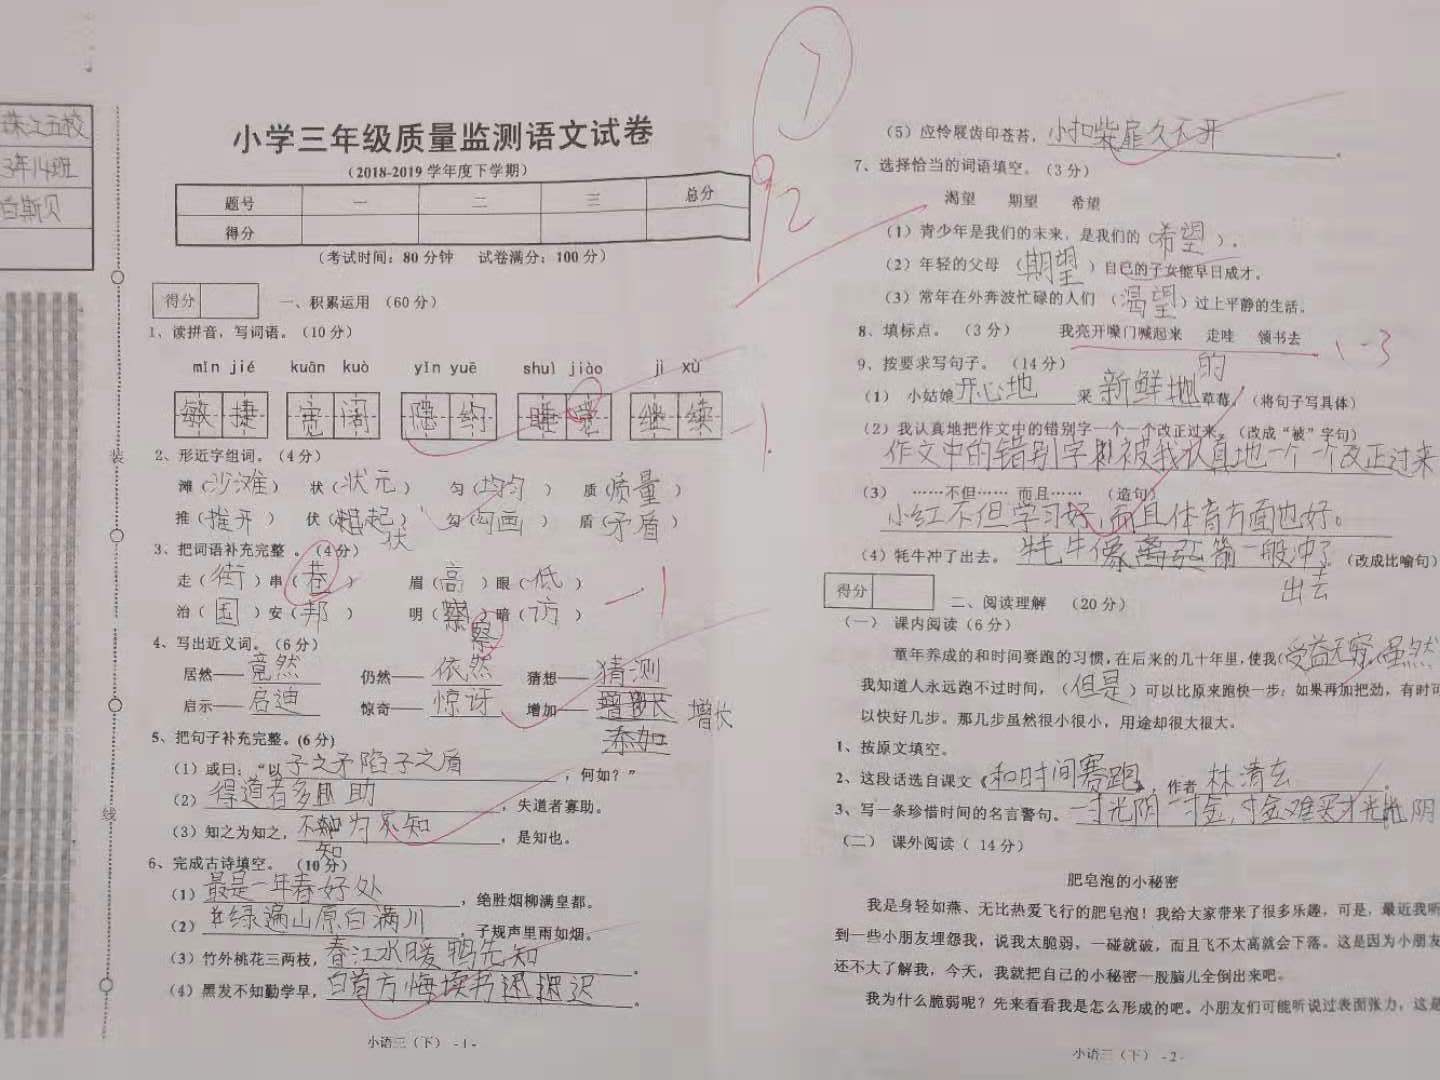 珠江五校
3年14班
白斯贝
小学三年级质量监测语文试卷
（2018-2019 学年度下学期）
题号 一 二 三 总分
得分
（考试时间：80 分钟 试卷满分：100 分）
得分 一、积累运用 （60 分）
1、读拼音，写词语。（10 分）
mǐn jié kuān kuò yǐn yuē shuì jiào jì xù
敏捷 宽阔 隐约 睡觉 继续 -1.
2、形近字组词。（4 分）
滩（沙滩） 状（状元） 匀（均匀） 质（质量）
推（推开） 伏（起伏） 勾（勾画） 盾（矛盾）
3、把词语补充完整 。（4 分）
走（街）串（巷） 眉（高）眼（低） -1
治（国）安（邦） 明（察）暗（访）
4、写出近义词。（6 分）
居然——竟然 仍然——依然 猜想——猜测
启示——启迪 惊奇——惊讶 增加——添加 增长
5、把句子补充完整。(6 分)
（1）或曰：“以子之矛陷子之盾，何如？”
（2）得道者多助，失道者寡助。
（3）知之为知之，不知为不知，是知也。
6、完成古诗填空。 （10 分）
（1）最是一年春好处，绝胜烟柳满皇都。
（2）绿遍山原白满川，子规声里雨如烟。
（3）竹外桃花三两枝，春江水暖鸭先知。
（4）黑发不知勤学早，白首方悔读书迟。
小语三（下） -1-
7
92
（5）应怜屐齿印苍苔，小扣柴扉久不开。
7、选择恰当的词语填空。（3 分）
渴望 期望 希望
（1）青少年是我们的未来，是我们的（希望）。
（2）年轻的父母 （期望）自己的子女能早日成才。
（3）常年在外奔波忙碌的人们 （渴望）过上平静的生活。
8、填标点。 （3 分） 我亮开嗓门喊起来 走哇 领书去 -3
9、按要求写句子。 （14 分）
（1） 小姑娘开心地采新鲜的草莓。（将句子写具体）
（2）我认真地把作文中的错别字一个一个改正过来。（改成“被”字句）
作文中的错别字被我认真地一个一个改正过来
（3） ……不但…… 而且…… （造句）
小红不但学习好，而且体育方面也好。
（4）牦牛冲了出去。 牦牛像离弦箭一般冲了出去（改成比喻句）
得分 二、阅读理解 （20 分）
（一） 课内阅读（6 分）
童年养成的和时间赛跑的习惯，在后来的几十年里，使我（受益无穷，虽然
我知道人永远跑不过时间，（但是）可以比原来跑快一步；如果再加把劲，有时可
以快好几步。那几步虽然很小很小，用途却很大很大。
1、按原文填空。
2、这段话选自课文《和时间赛跑》，作者林清玄。
3、写一条珍惜时间的名言警句。一寸光阴一寸金，寸金难买寸光阴
（二） 课外阅读（ 14 分）
肥皂泡的小秘密
我是身轻如燕、无比热爱飞行的肥皂泡！我给大家带来了很多乐趣，可是，最近我听
到一些小朋友埋怨我，说我太脆弱。一碰就破，而且飞不太高就会下落。这是因为小朋友
还不大了解我，今天，我就把自己的小秘密一股脑儿全倒出来吧。
我为什么脆弱呢？先来看看我是怎么形成的吧。小朋友们可能听说过表面张力，这是
小语三（下） -2-